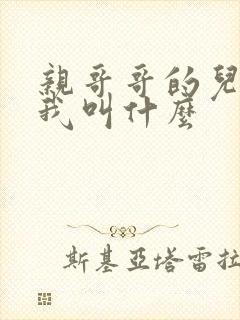 親哥哥的兒
我叫什麼
斯基亞塔雷拉